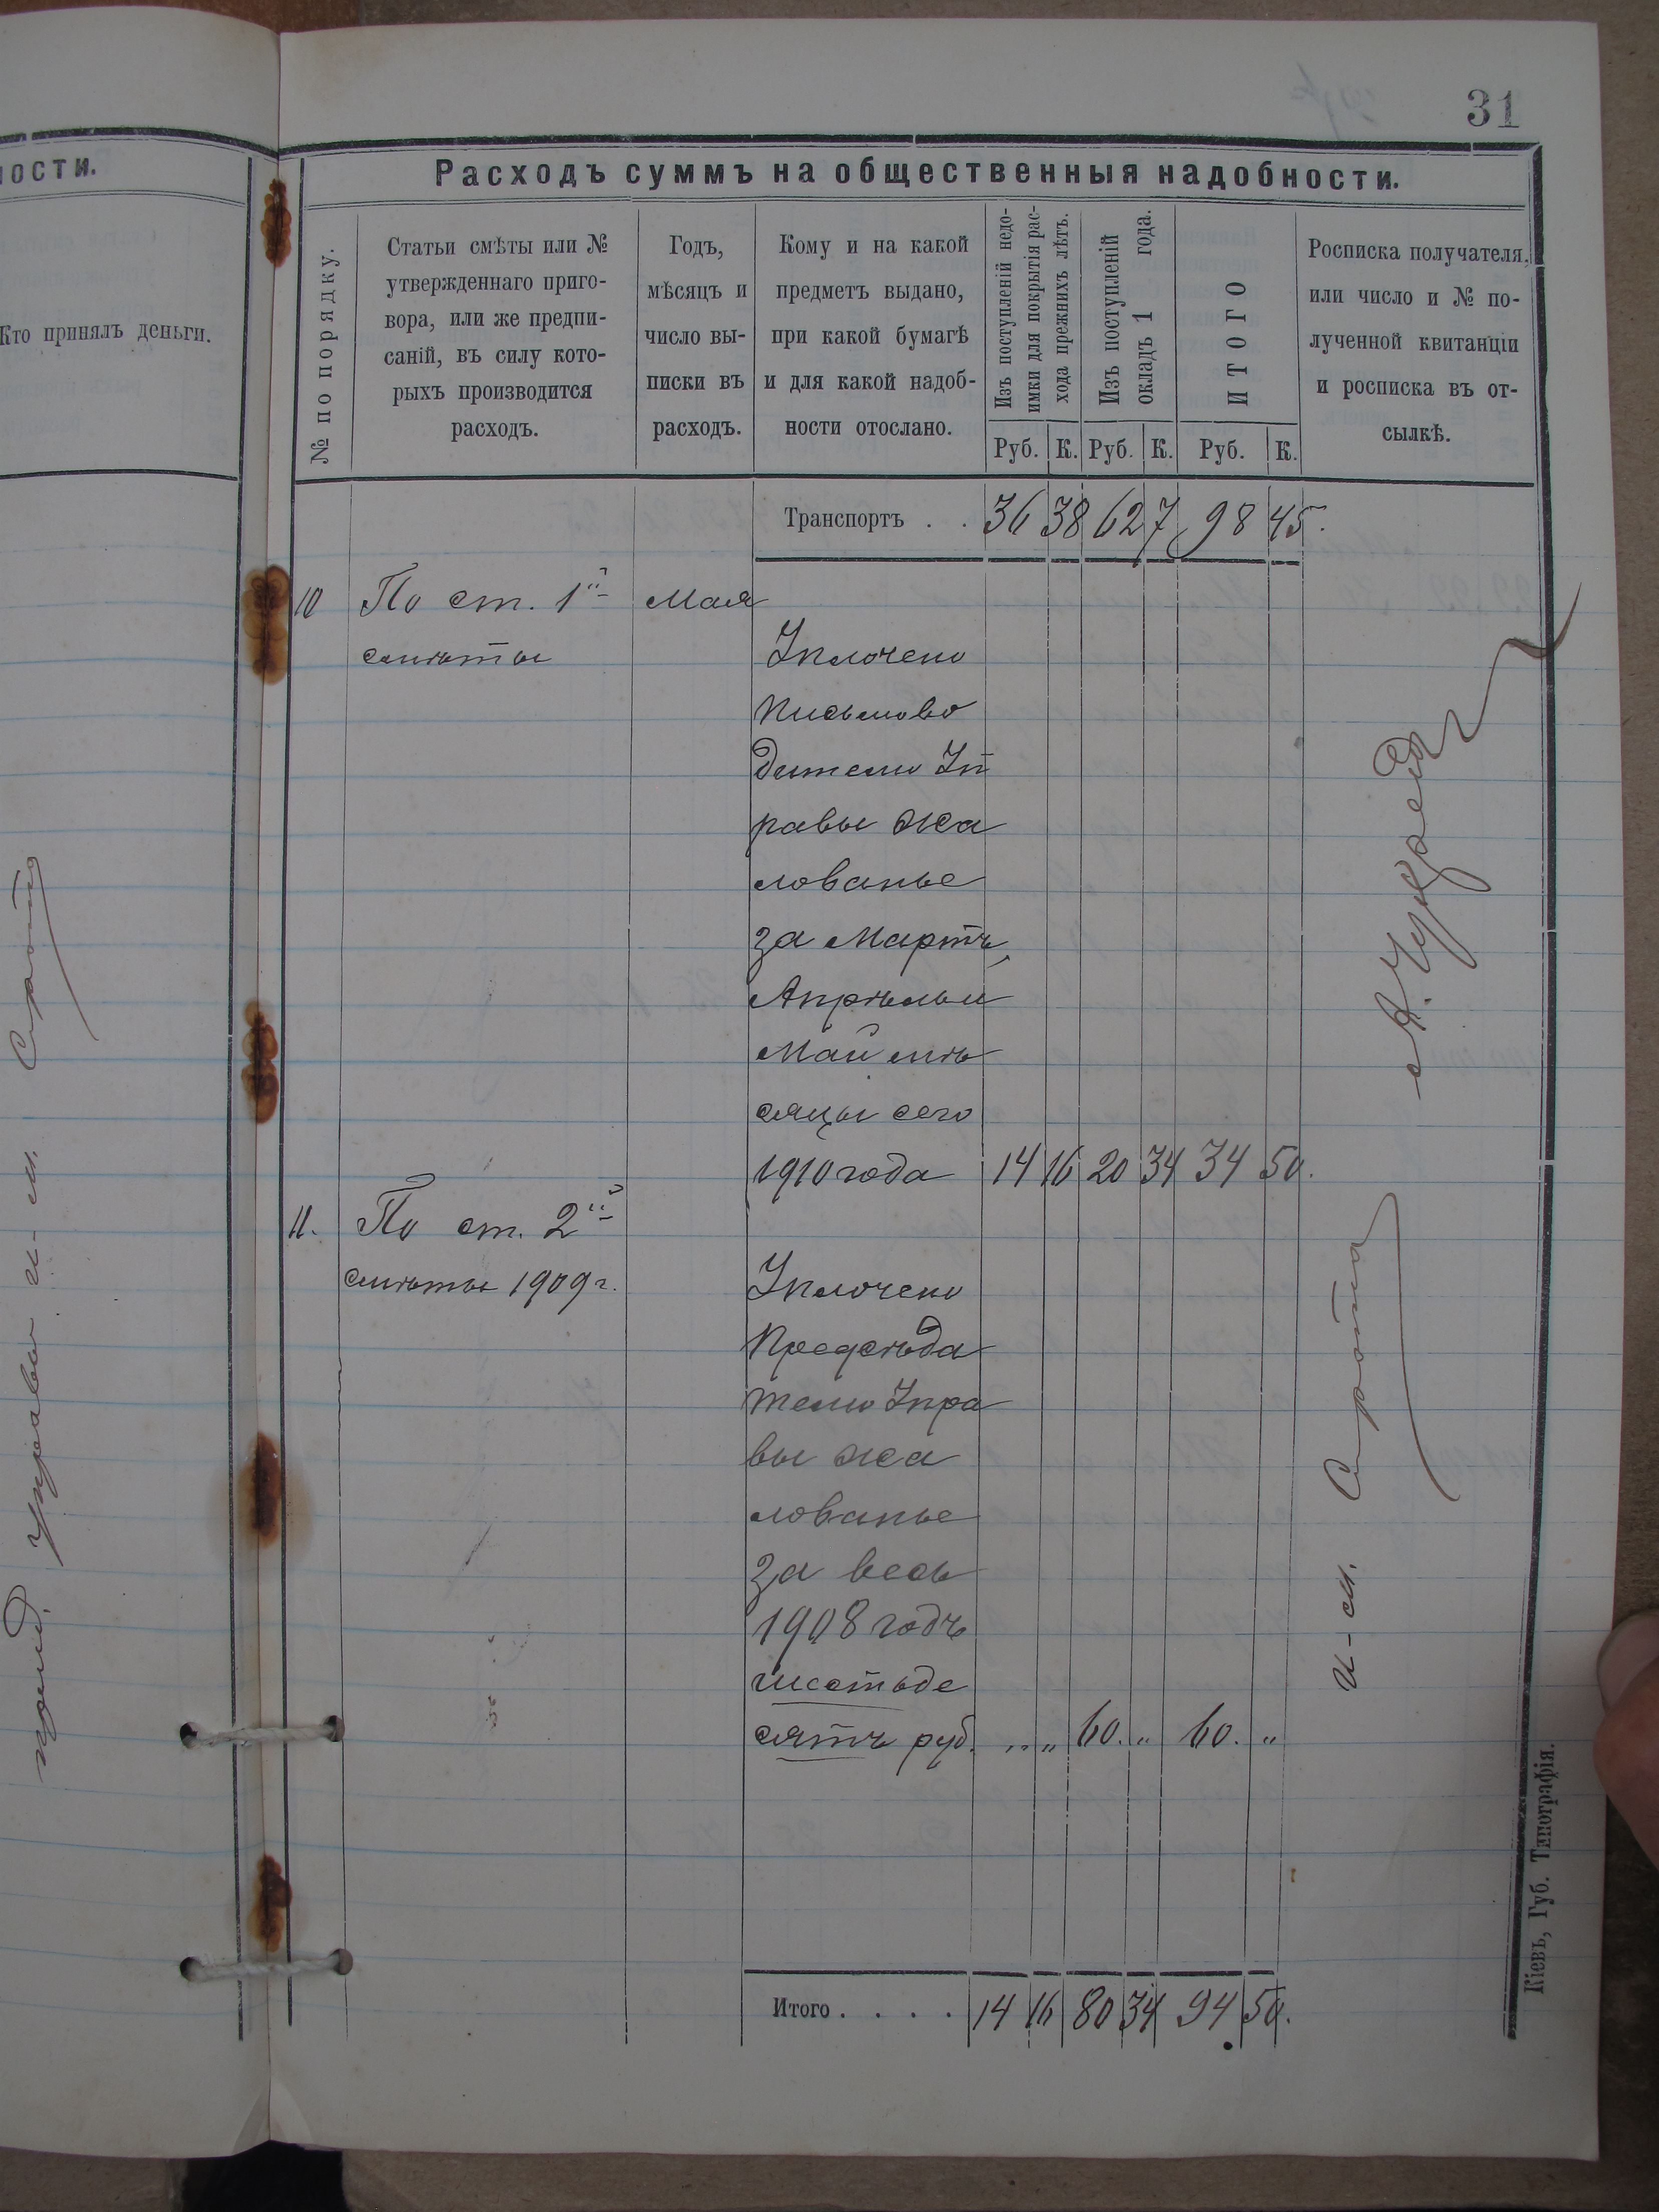 31
ности.
Кто принялъ деньги.
Расходъ суммъ на общественныя надобности.
№ по порядку.
Статьи смѣты или №
утвержденнаго приго-
вора, или же предпи-
саній, въ силу кото-
рыхъ производится
расходъ.
Годъ,
мѣсяцъ и
число вы-
писки въ
расходъ.
Кому и на какой
предметъ выдано,
при какой бумагѣ
и для какой надоб-
ности отослано.
Изъ поступленій недо-
имки для покрытія рас-
хода прежнихъ лѣтъ.
Изъ поступленій
окладъ 1 года.
ИТОГО
Росписка получателя,
или число и № по-
лученной квитанціи
и росписка въ от-
сылкѣ.
Руб. К. Руб. К. Руб. К.
Транспортъ . . 36 38 62 7 98 45.
10 По ст. 1й Мая
смѣты Уплочено
письмово
дителю Уп
равы жа
лованье
за Мартъ,
Апрѣль и
Май мѣ
сяцы сего
1910 года 14 16 20 34 34 50.
11. По ст. 2й
смѣты 1909 г. Уплочено
Предсѣда
телю Упра
вы жа
лованье
за весь
1908 годъ
шестьде
сятъ руб. „ „ 60. „ 60. „
Итого . . . . 14 16 80 34 94 50.
И-м. Сирота
управы и-м. Сирота
Кіевъ, Губ. Типографія.